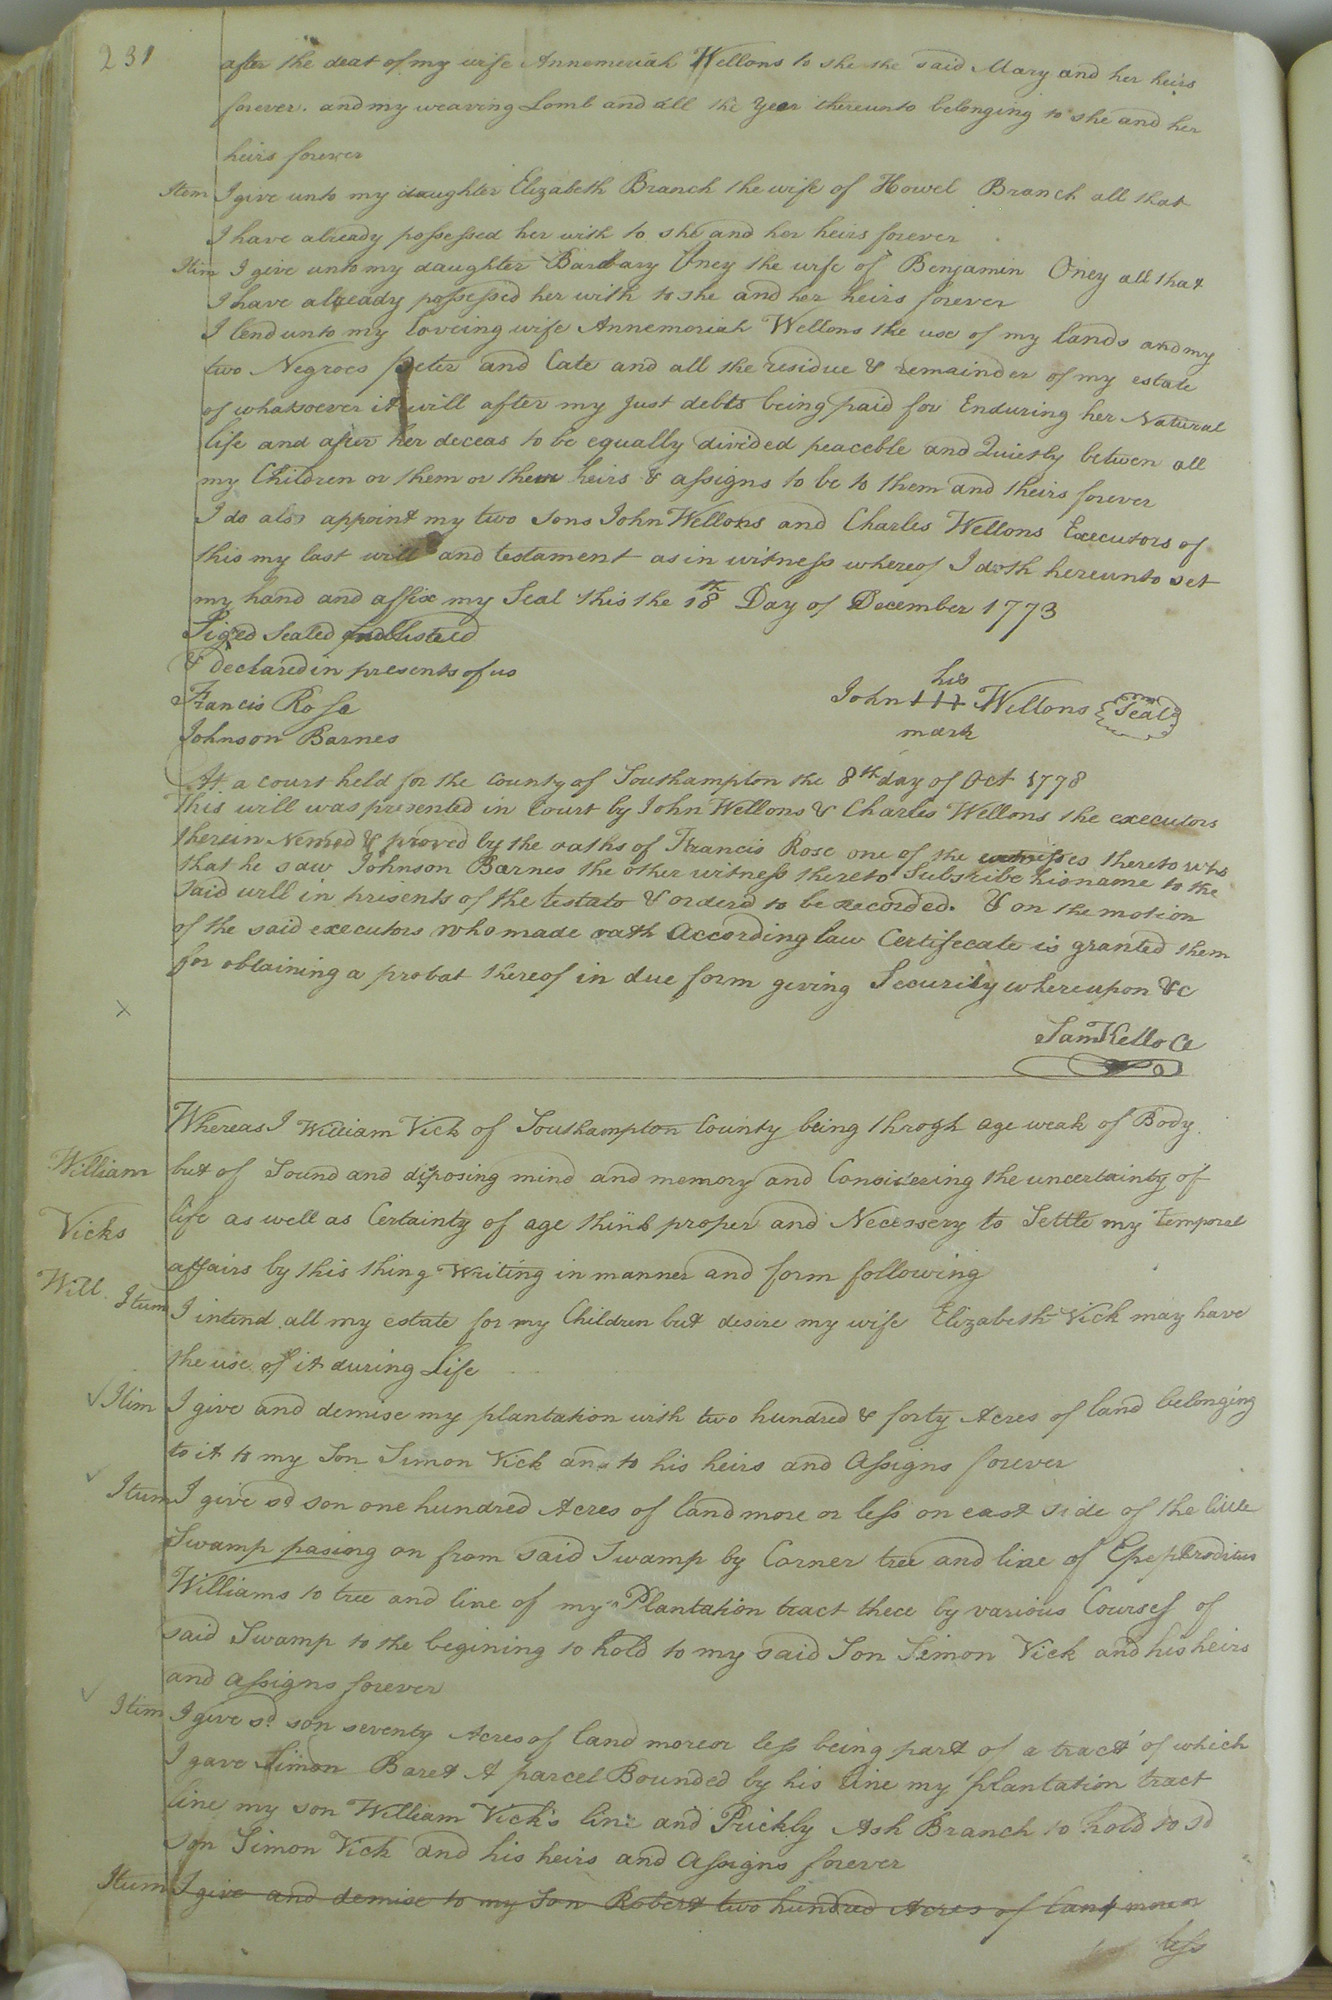 231
after the deat of my wife Annemeriah Wellons to she the said Mary and her heirs
forever. and my weaving Lomb and all the Geer thereunto belonging to she and her
heirs forever
Item I give unto my daughter Elizabeth Branch the wife of Howel Branch all that
I have already possessed her with to she and her heirs forever
Itim I give unto my daughter Barbary Oney the wife of Benjamin Oney all that
I have already possessed her with to she and her heirs forever
I lend unto my loveing wife Annemoriah Wellons the use of my lands and my
two Negroes peter and Cate and all the residue & remainder of my estate
of whatsoever it will after my just debts being paid for Enduring her Natural
life and after her deceas to be equally divided peaceble and Quietly betwen all
my Children or them or their heirs & assigns to be to them and theirs forever
I do also appoint my two sons John Wellons and Charles Wellons Executors of
this my last will and testament as in witness whereof I doth hereunto set
my hand and affix my Seal this the 18th Day of December 1773
Signed Sealed
& declared in presents of us
Francis Rose
his
John +++ Wellons Seal
mark
Johnson Barnes
At a court held for the county of Southampton the 8th day of Oct 1778
This will was presented in Court by John Wellons & Charles Wellons the executors
therein Nemed & proved by the oaths of Francis Rose one of the witnesses thereto who
that he saw Johnson Barnes the other witness thereto Subscribe his name to the
said will in prisents of the testato & orderd to be recorded. & on the motion
of the said executors who made oath According law Certifecate is granted them
for obtaining a probat thereof in due form geving Security whereupon &c
Sam Kello Cl
William
Vicks
Will.
Whereas I William Vick of Southampton County being throgh age weak of Body
but of Sound and disposing mind and memory and Considering the uncertainty of
life as well as Certainty of age think proper and Necessery to Settle my Temporal
affairs by this thing Writing in manner and form following
Itum I intend all my estate for my Children but desire my wife Elizabeth Vick may have
the use of it during Life
Itim I give and demise my plantation with two hundred & forty Acres of land belonging
to it to my Son Simon Vick and to his heirs and Assigns forever
Itum I give sd son one hundred Acres of land more or less on east side of the little
Swamp pasing on from said Swamp by Corner tree and line of Epephroditus
Williams to tree and line of my Plantation tract thece by various Courses of
said Swamp to the begining to hold to my said Son Simon Vick and his heirs
and assigns forever
Itim I give sd son seventy Acres of land more or less being part of a tract of which
I gave Simon Baret A parcel Bounded by his line my plantation tract
line my son William Vick's line and Prickly Ash Branch to hold to sd
son Simon Vick and his heirs and Assigns forever
Itum I give and demise to my Son Robert two hundred Acres of land more or
less